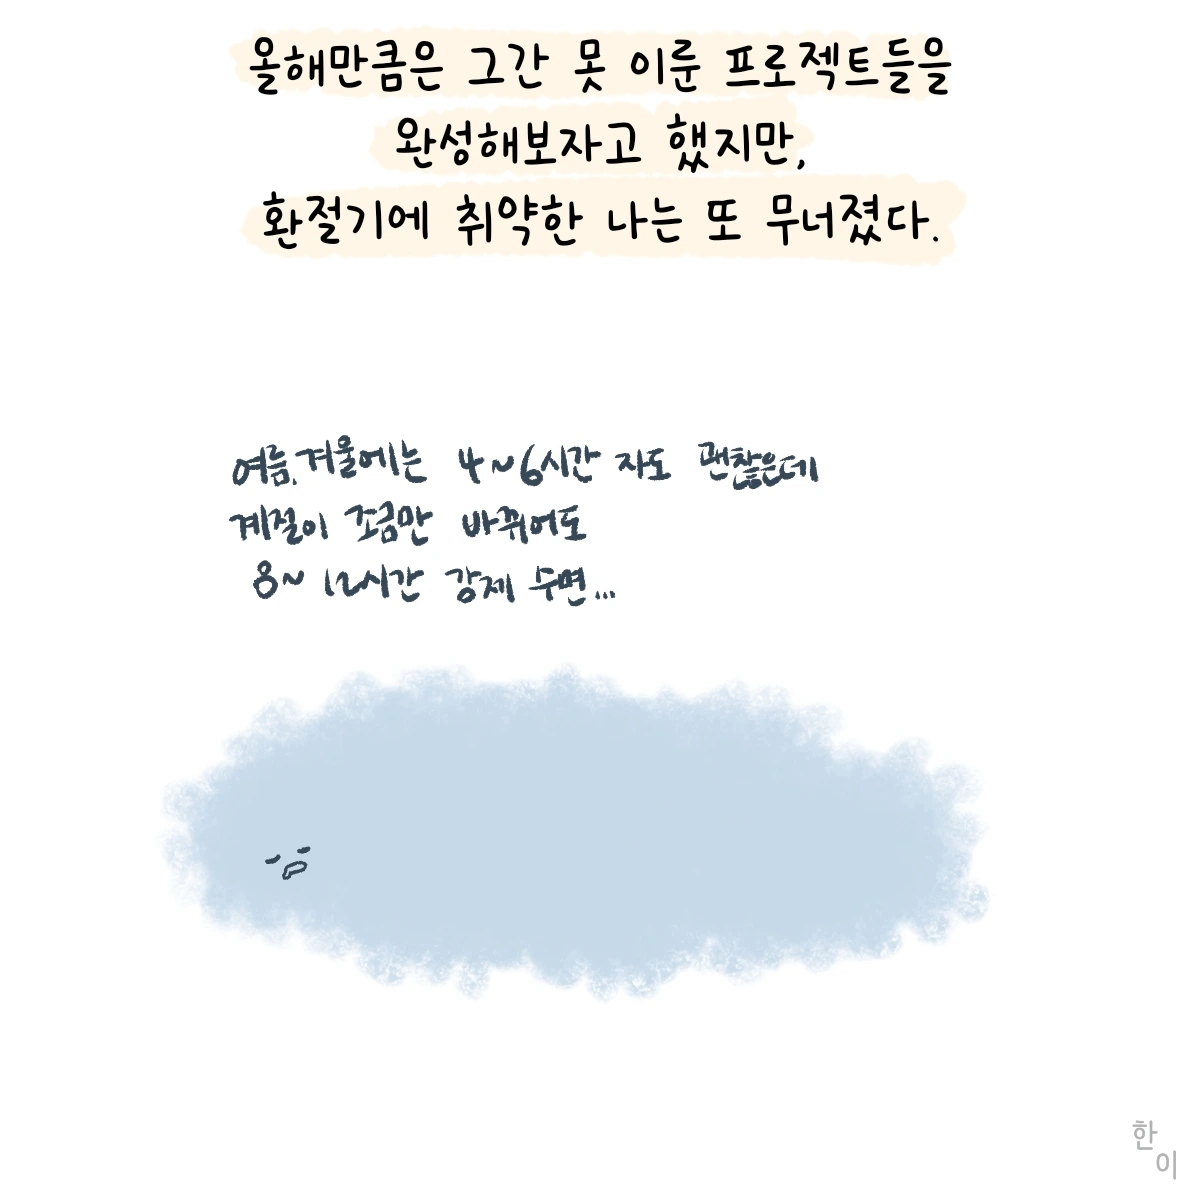 올해만큼은 그간 못 이룬 프로젝트들을
완성해보자고 했지만,
환절기에 취약한 나는 또 무너졌다.
여름, 겨울에는 4~6시간 자도 괜찮은데
계절이 조금만 바뀌어도
8~12시간 강제 수면...
한
이